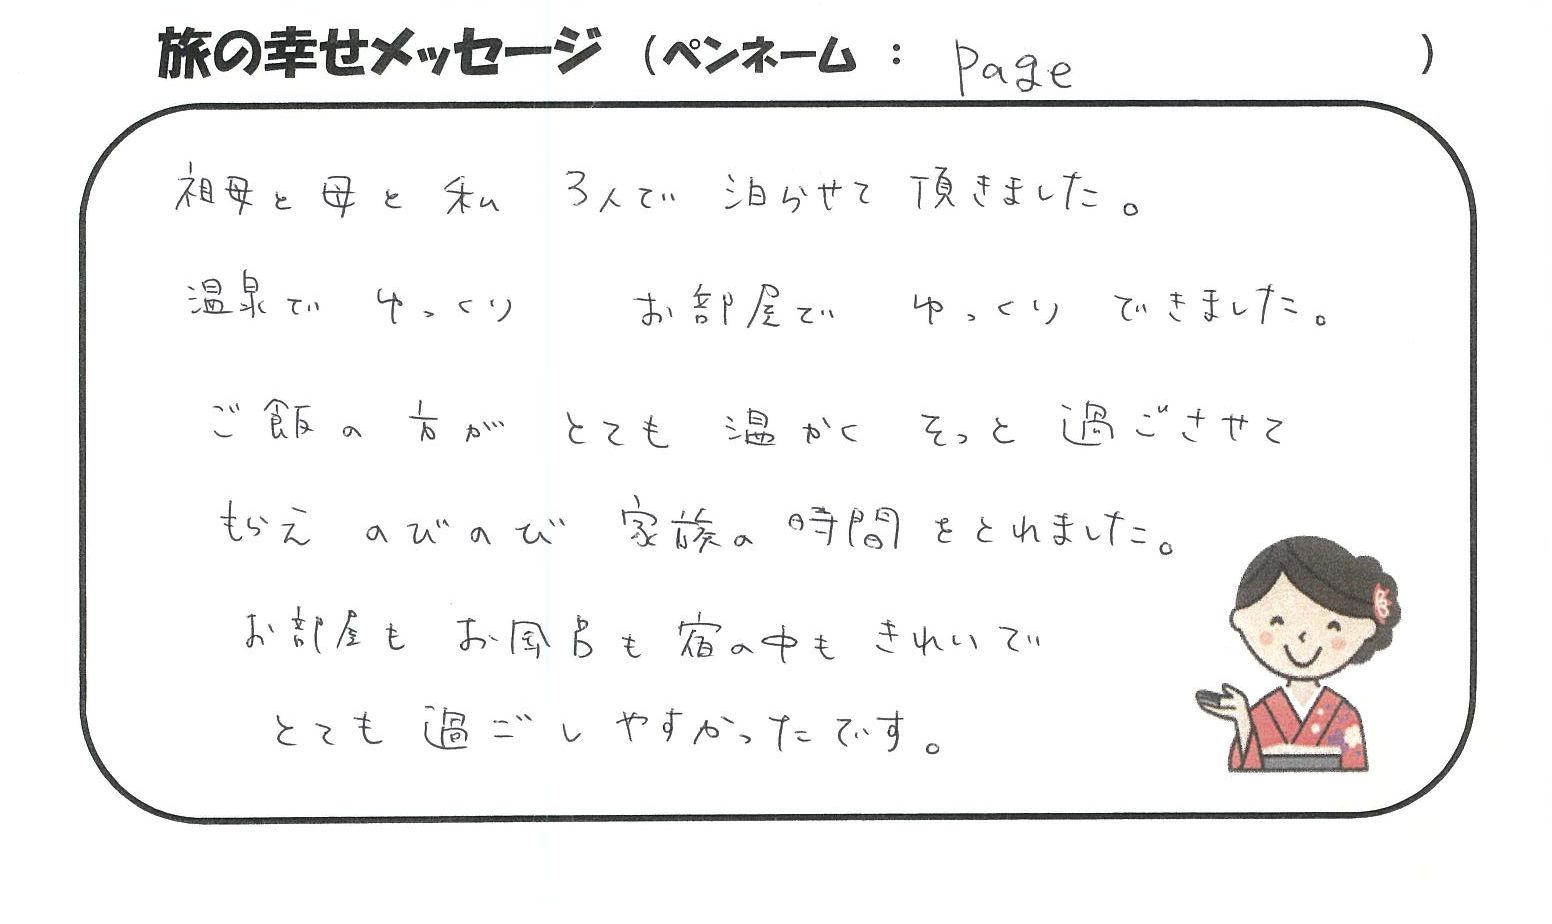 旅の幸せメッセージ（ペンネーム：Page）
祖母と母と私 3人で 泊らせて 頂きました。
温泉で ゆっくり お部屋で ゆっくり できました。
ご飯の方が とても 温かく そっと 過ごさせて
もらえ のびのび 家族の時間をとれました。
お部屋も お風呂も 宿の中も きれいで
とても 過ごしやすかったです。